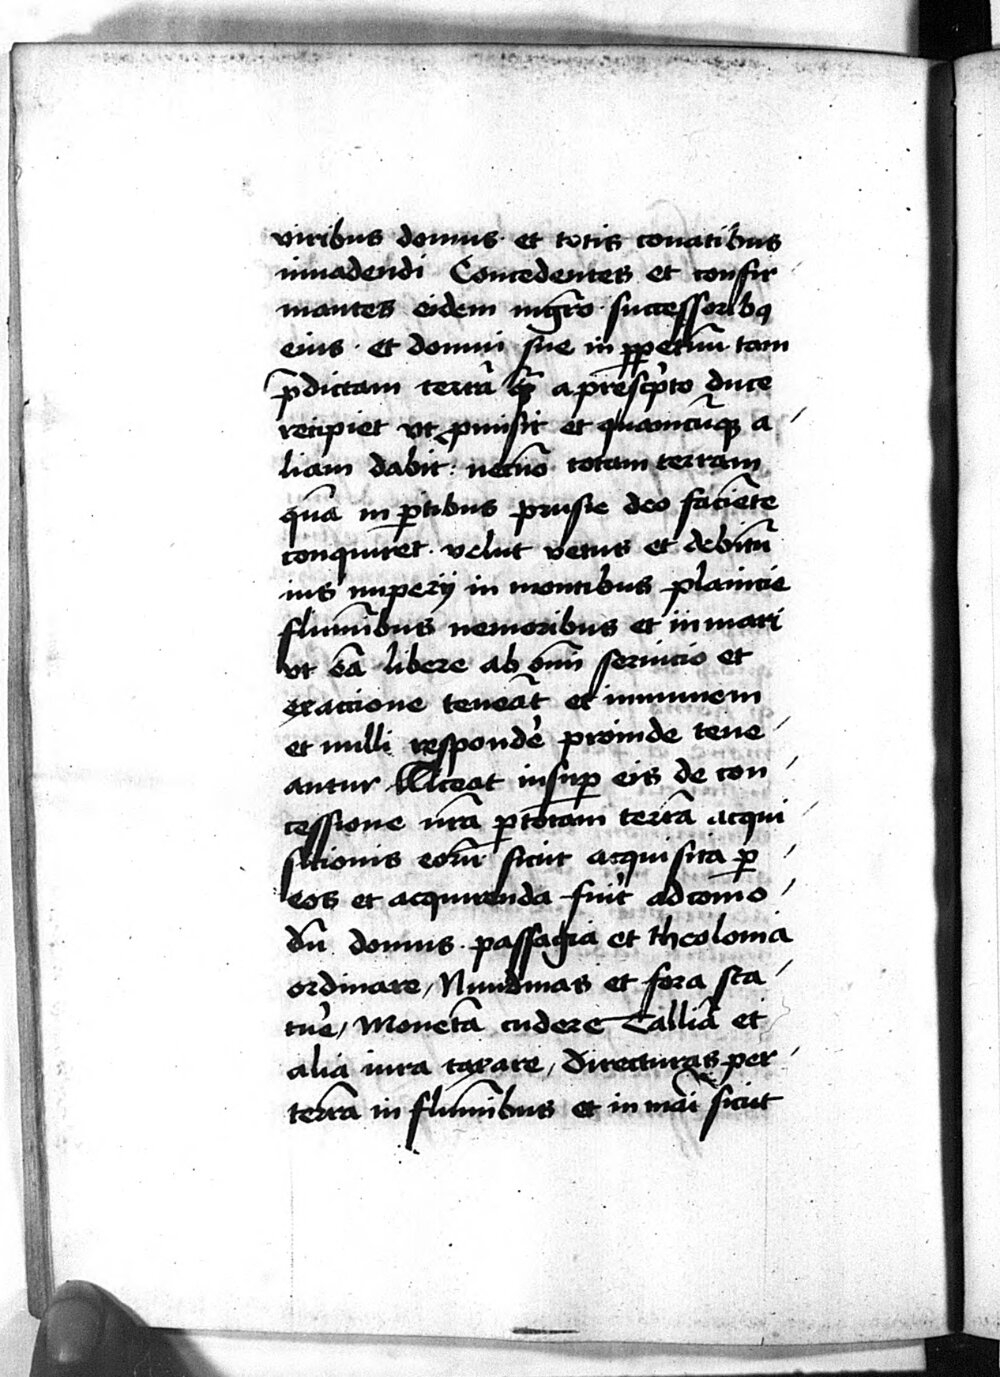 viribus domus et totis conatibus
inuadendi Concedentes et confir
mantes eidem mgro successoribq
eius · et domui sue in ppetuū tam
p̄dictam terrā q̄ȝ a prescͥpto duce
recipiet vt ꝓmisit et quamcūqꝫ a
liam dabit: necnō totam terram
quā in ꝑtibus prusie deo faciēte
conquiret · velut vetus et debitū
ius imperij in montibus planicie
flumīibus nemoribus et in mari
vt eā libere ab om̄i seruicio et
exactione teneāt et immunem
et nulli respondeͤ proinde tene
antur Liceat insuꝑ eis de con
cessione nr̄a ꝑ totam terrā acqui
sicionis eorū sicut acquisita ꝑ
eos et acquirenda fuit̉ ad como
dū domus · passagia et theolonia
ordinare, Nundinas et fora sta
tuē, Monetā cudere Talliā et
alia iura taxare, directuras per
terrā in flumīibus et in mā̉i sicut